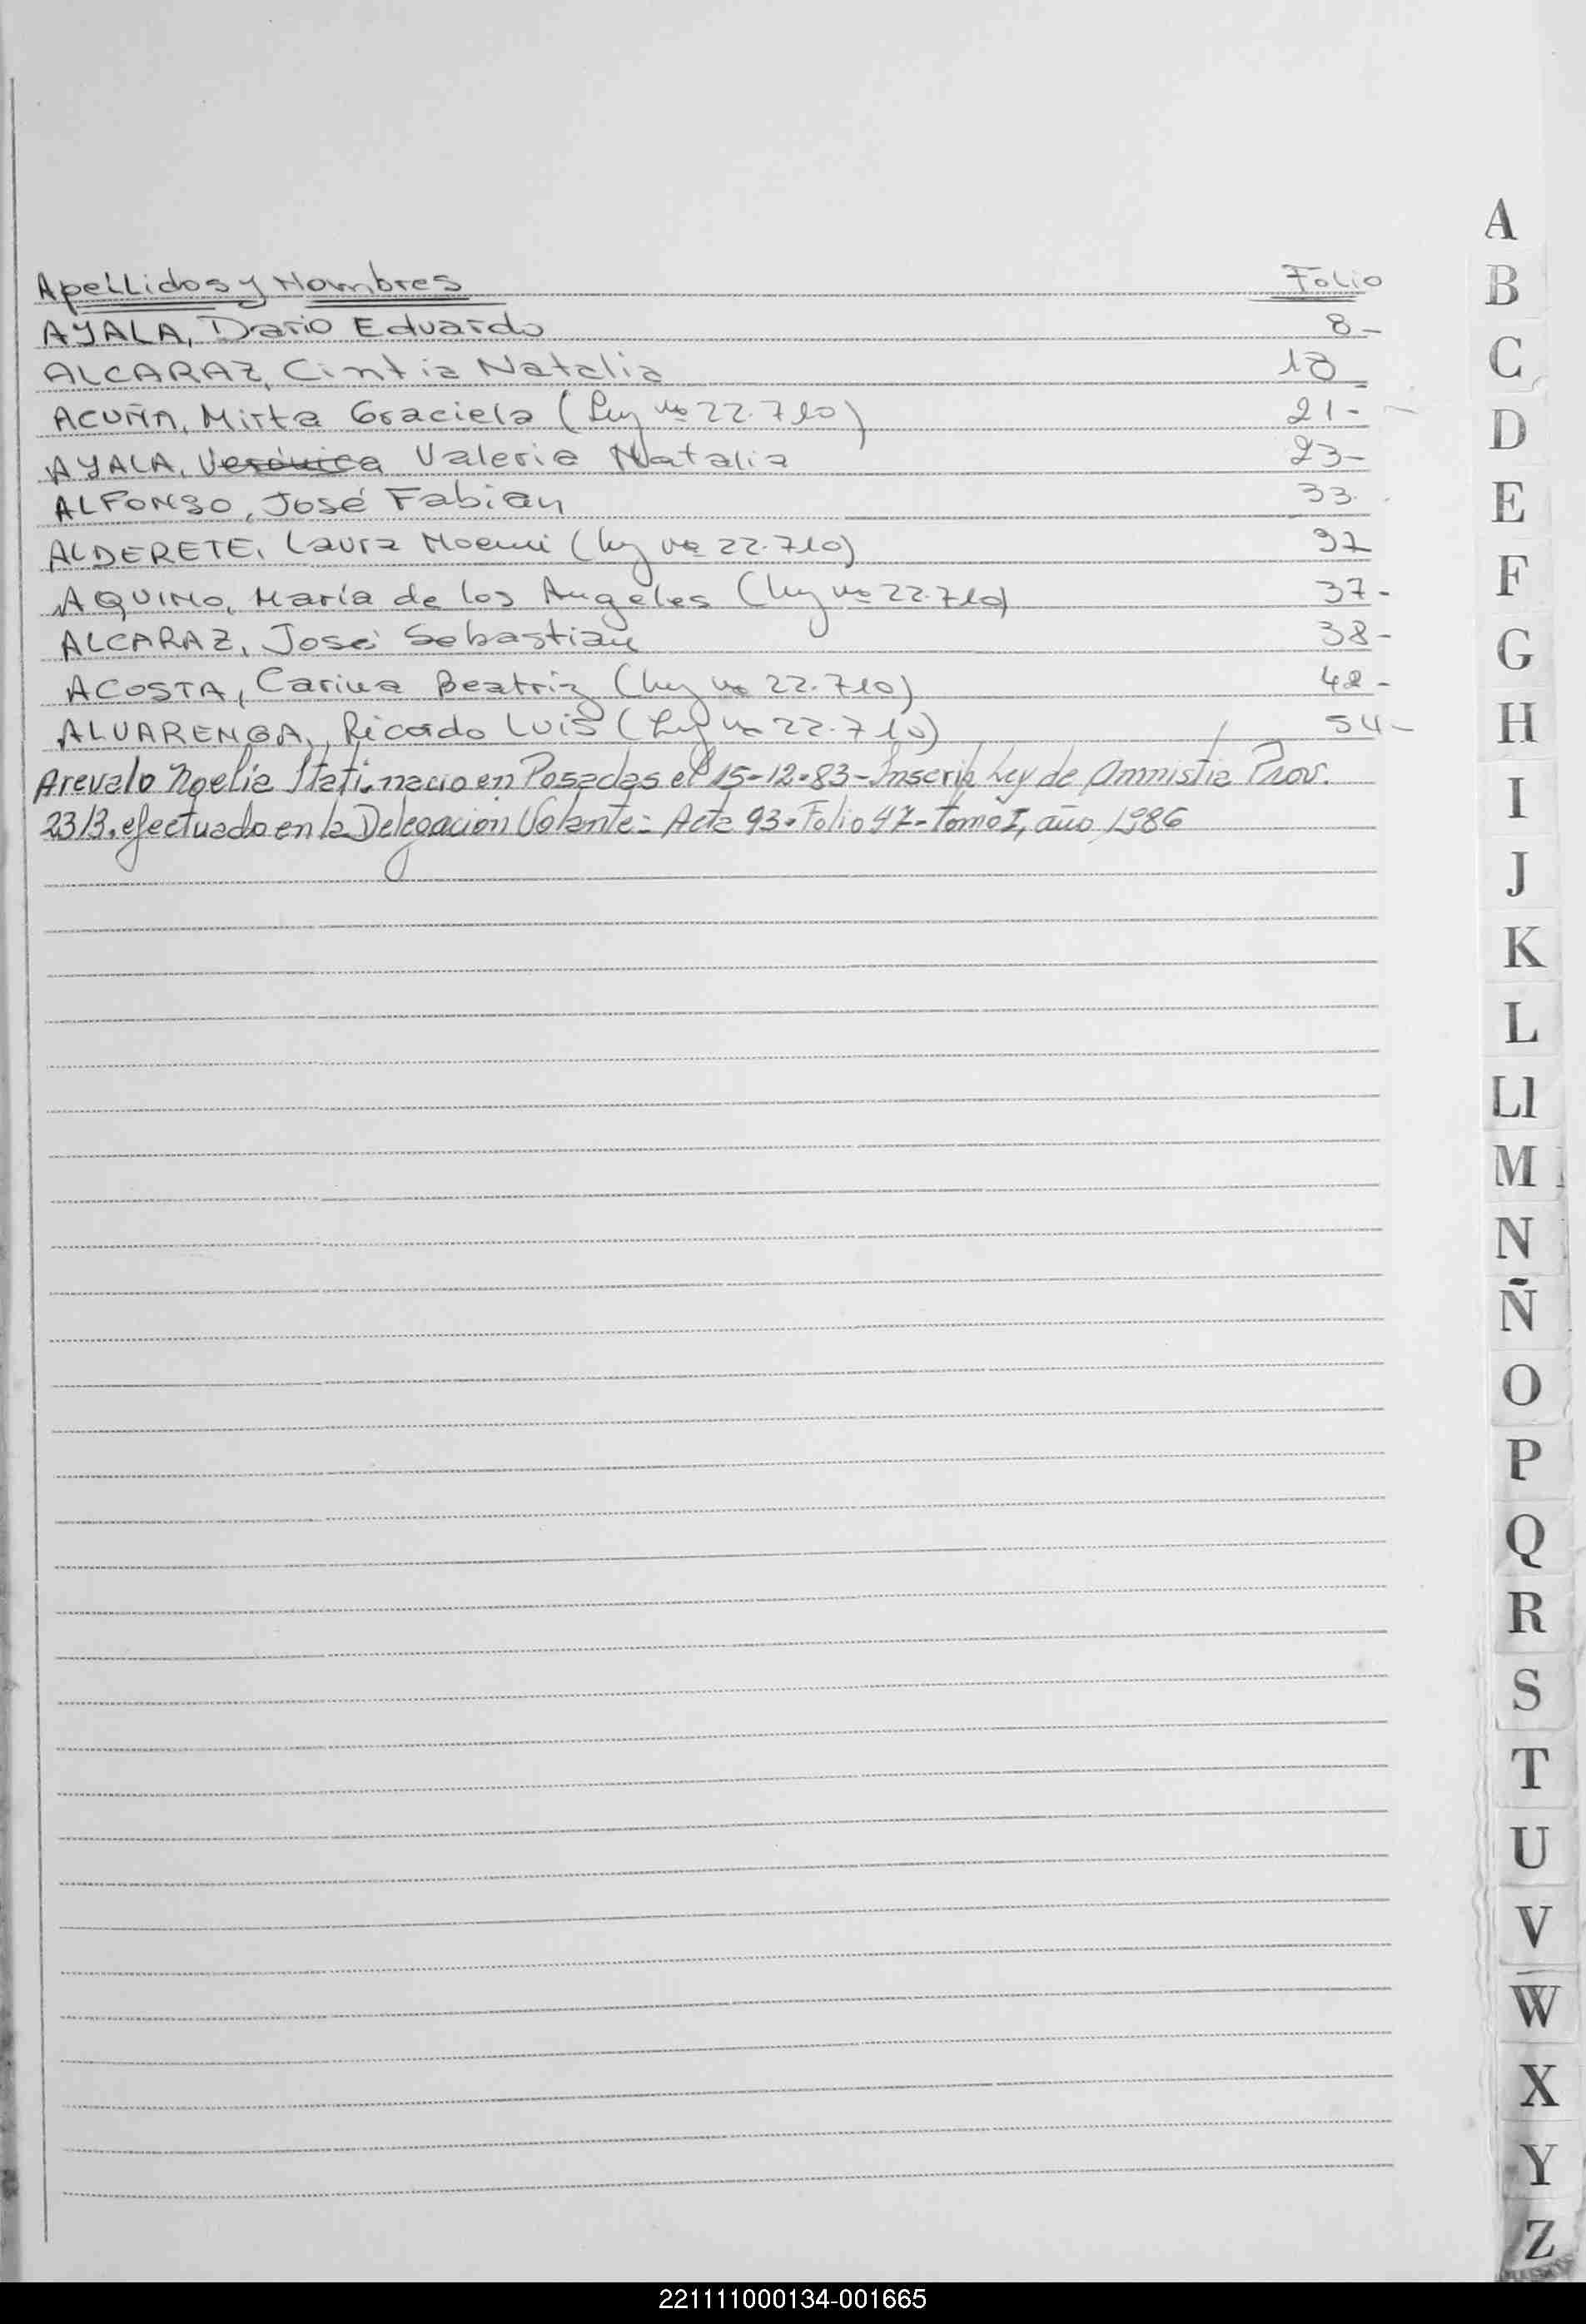 Apellidos y Nombres Folio
AYALA, Dario Eduardo 8-
ALCARAZ, Cintia Natalia 18
ACUÑA, Mirta Graciela (Ley nº 22.710) 21-
AYALA, Verónica Valeria Natalia 23-
ALFONSO, José Fabian 33
ALDERETE, Laura Noemi (Ley nº 22.710)
AQUINO, María de los Angeles (Ley nº 22.710) 37-
ALCARAZ, José Sebastian 38-
ACOSTA, Carina Beatriz (Ley nº 22.710) 48-
ALVARENGA, Ricardo Luis (Ley nº 22.710) 54-
Arevalo Noelia Itati, nacio en Posadas el 15-12-83- Inscrip Ley de Amnistia Prov.
2313. efectuado en la Delegación Volante: Acta 93- Folio 47- Tomo I, año 1986
A
B
C
D
E
F
G
H
I
J
K
L
Ll
M
N
Ñ
O
P
Q
R
S
T
U
V
W
X
Y
Z
221111000134-001665